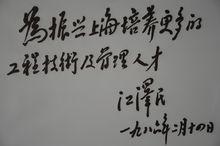 为振兴上海培养更多的
工程技術及管理人才
江澤民
一九八六年二月十四日